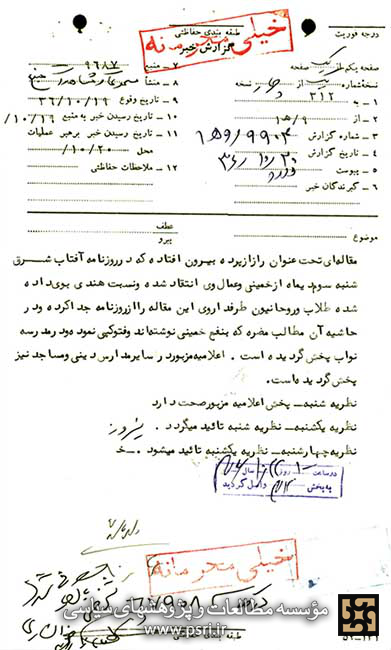 خیلی محرمانه
درجه فوریت
طبقه بندی حفاظتی
گزارش خبر
صفحه یکم از یک صفحه
نسخه شماره از چهار نسخه
۱ - به ۳۱۲
۲ - از ۹/ه‍ ۱
۳ - شماره گزارش ۹۹۰۴/۹ه‍ ۱
۴ - تاریخ گزارش
۵ - پیوست دارد
۶ - گیرندگان خبر
۷ - منبع ۹۶۸۷
۸ - منشأ
۹ - تاریخ وقوع ۳۶/۱۰/۱۹
۱۰ - تاریخ رسیدن خبر به منبع ۱۰/۱۹/
۱۱ - تاریخ رسیدن خبر برهبر عملیات
محل ۱۰/۲۰/
۱۲ - ملاحظات حفاظتی
موضوع
عطف
پیرو
مقاله‌ای تحت عنوان راز از پرده بیرون افتاده که در روزنامه آفتاب شرق
شنبه سوم دیماه از خمینی و عمال وی انتقاد شده و نسبت هندی بوی داده
شده طلاب و روحانیون طرفدار وی این مقاله را از روزنامه جدا کرده و در
حاشیه آن مطالب مضره که بنفع خمینی نوشته‌اند و فتوکپی نموده و در مدرسه
نواب پخش گردیده است . اعلامیه مزبور در سایر مدارس دینی و مساجد نیز
پخش گردیده است.
نظریه شنبه - پخش اعلامیه مزبور صحت دارد
نظریه یکشنبه - نظریه شنبه تائید میگردد .
نظریه چهارشنبه - نظریه یکشنبه تائید میشود . - خ
در ساعت روز
به بخش واصل گردید
خیلی محرمانه
مؤسسه مطالعات و پژوهشهای سیاسی
www.psri.ir
طبقه بندی حفاظتی